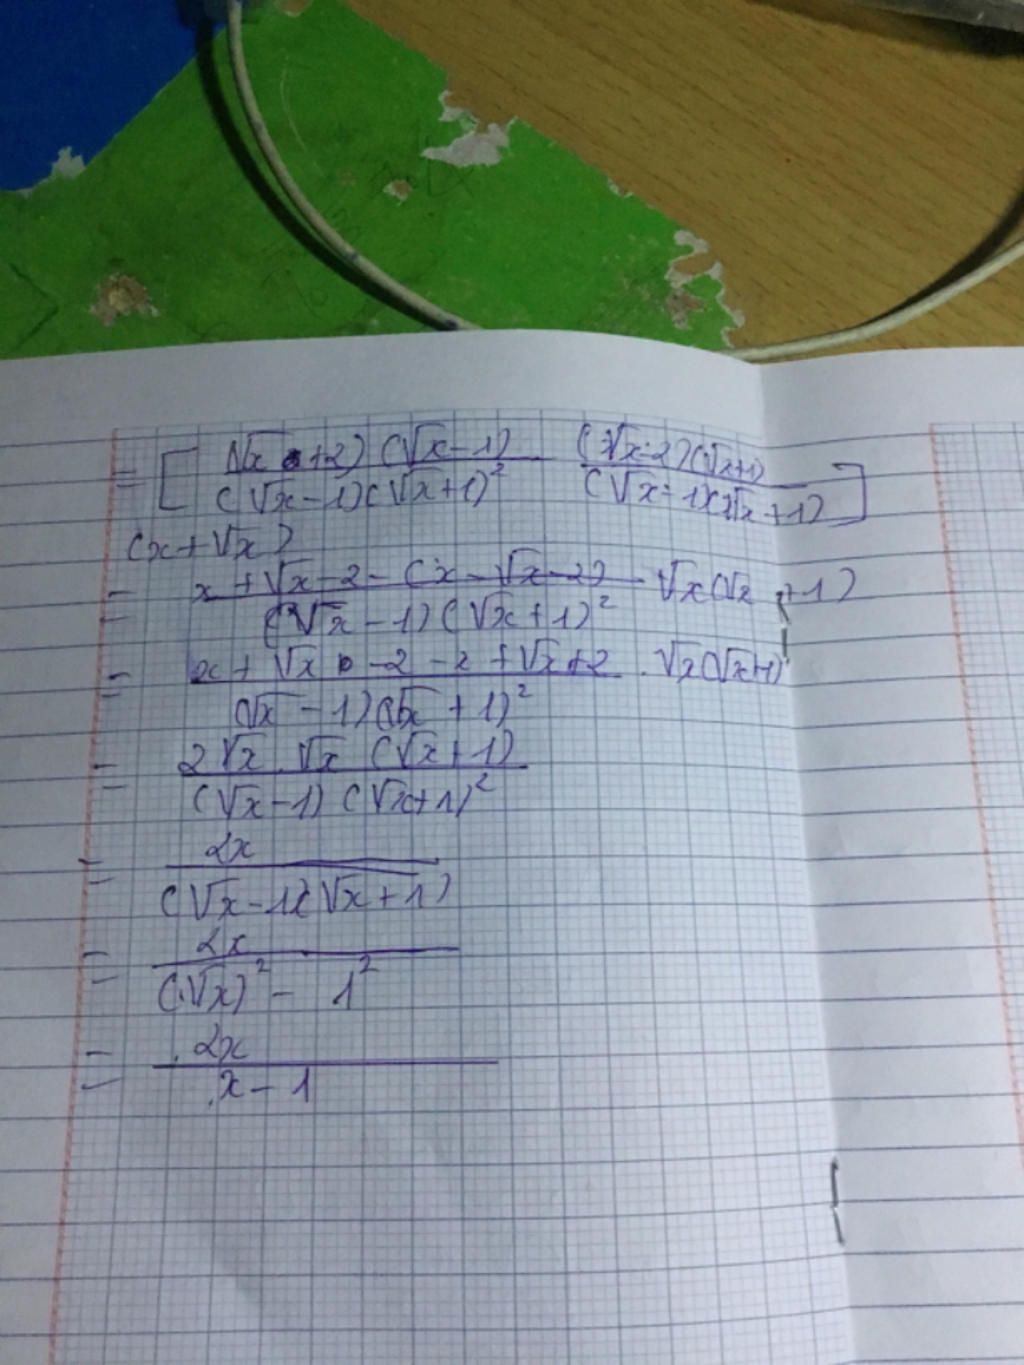 = [ (√x +2) (√x-1) / (√x-1)(√x+1)² (√x-2)(√x+1) / (√x-1)(√x+1) ]
(x+√x)
= x+√x-2-(x-√x-2) / (√x-1)(√x+1)² . √x(√x+1)
= x+√x-2-x+√x+2 / (√x-1)(√x+1)² . √x(√x+1)
= 2√x.√x (√x+1) / (√x-1)(√x+1)²
= 2x / (√x-1)(√x+1)
= 2x / (√x)² - 1²
= 2x / x-1